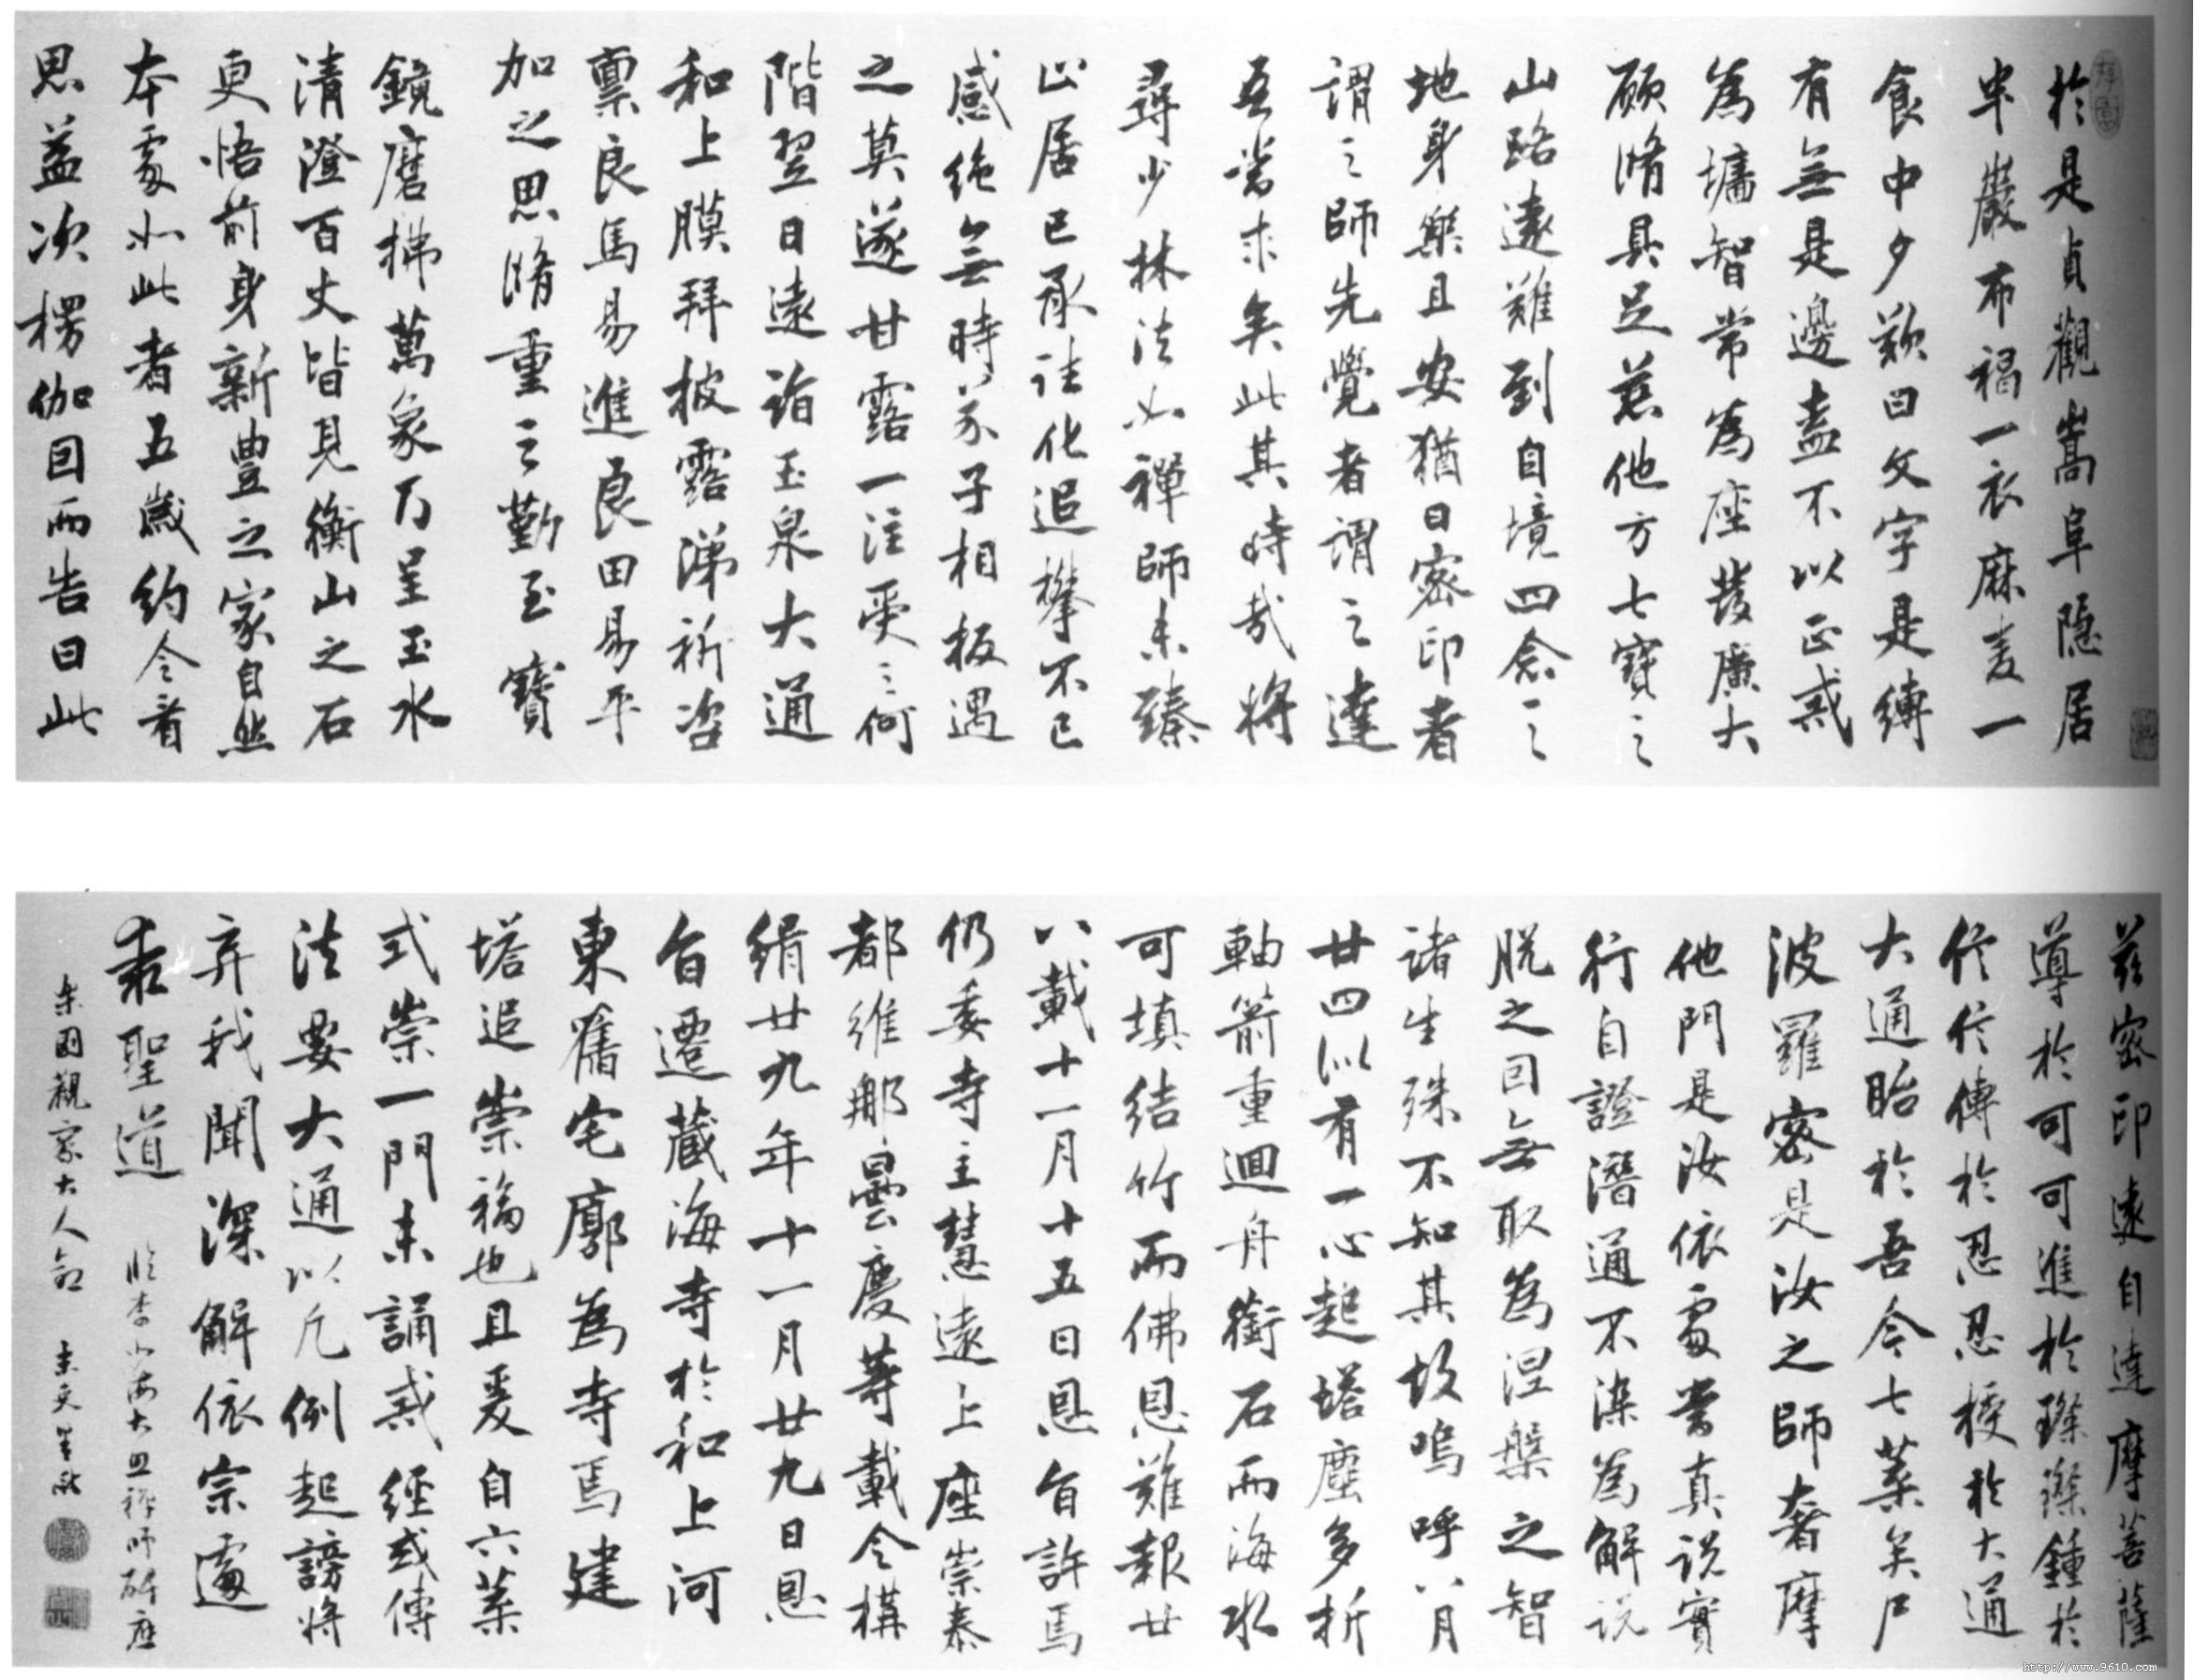 於是貞觀嵩阜隱居
半巖布褐一衣麻麦一
食中夕歎曰文字是縛
有無是邊盍不以正戒
為墉智常為座發廣大
願脩具足慈他方七寶之
山路遠難到自境四念之
地身樂且安猶曰密印者
謂之師先覺者謂之達
吾當求矣此其時哉將
尋少林法如禪師未臻
止居已承往化追攀不已
感絶無時芥子相投遇
之莫遂甘露一注受之何
階翌日遠詣玉泉大通
和上膜拜披露涕祈咨
禀良馬易進良田易平
加之思脩重之勤至寶
鏡磨拂萬象乃呈玉水
清澄百丈皆見衡山之石
更悟前身新豊之家自然
本處如此者五歲約令看
思益次楞伽因而告曰此
兹密印遠自達摩菩薩
導於可可進於璨璨鍾於
信信傳於忍忍授於大通
大通貽於吾今七葉矣尸
波羅密是汝之師奢摩
他門是汝依處當真說實
行自證潛通不染為解說
脫之因無取為涅槃之智
諸生殊不知其故嗚呼八月
廿四以有一心起塔塵多折
軸箭重迴舟銜石而海水
可填結竹而佛恩難報廿
八載十一月十五日恩旨許焉
仍委寺主慧遠上座崇泰
都維那曇慶等載令構
緝廿九年十一月廿九日恩
旨遷藏海寺於和上河
東舊宅廓為寺焉建
塔追崇福也且爰自六葉
式崇一門未誦戒經或傳
法要大通以凡例起謗將
弃我聞深解依宗處
乘聖道
臨李北海大照禪師碑應
親家大人命